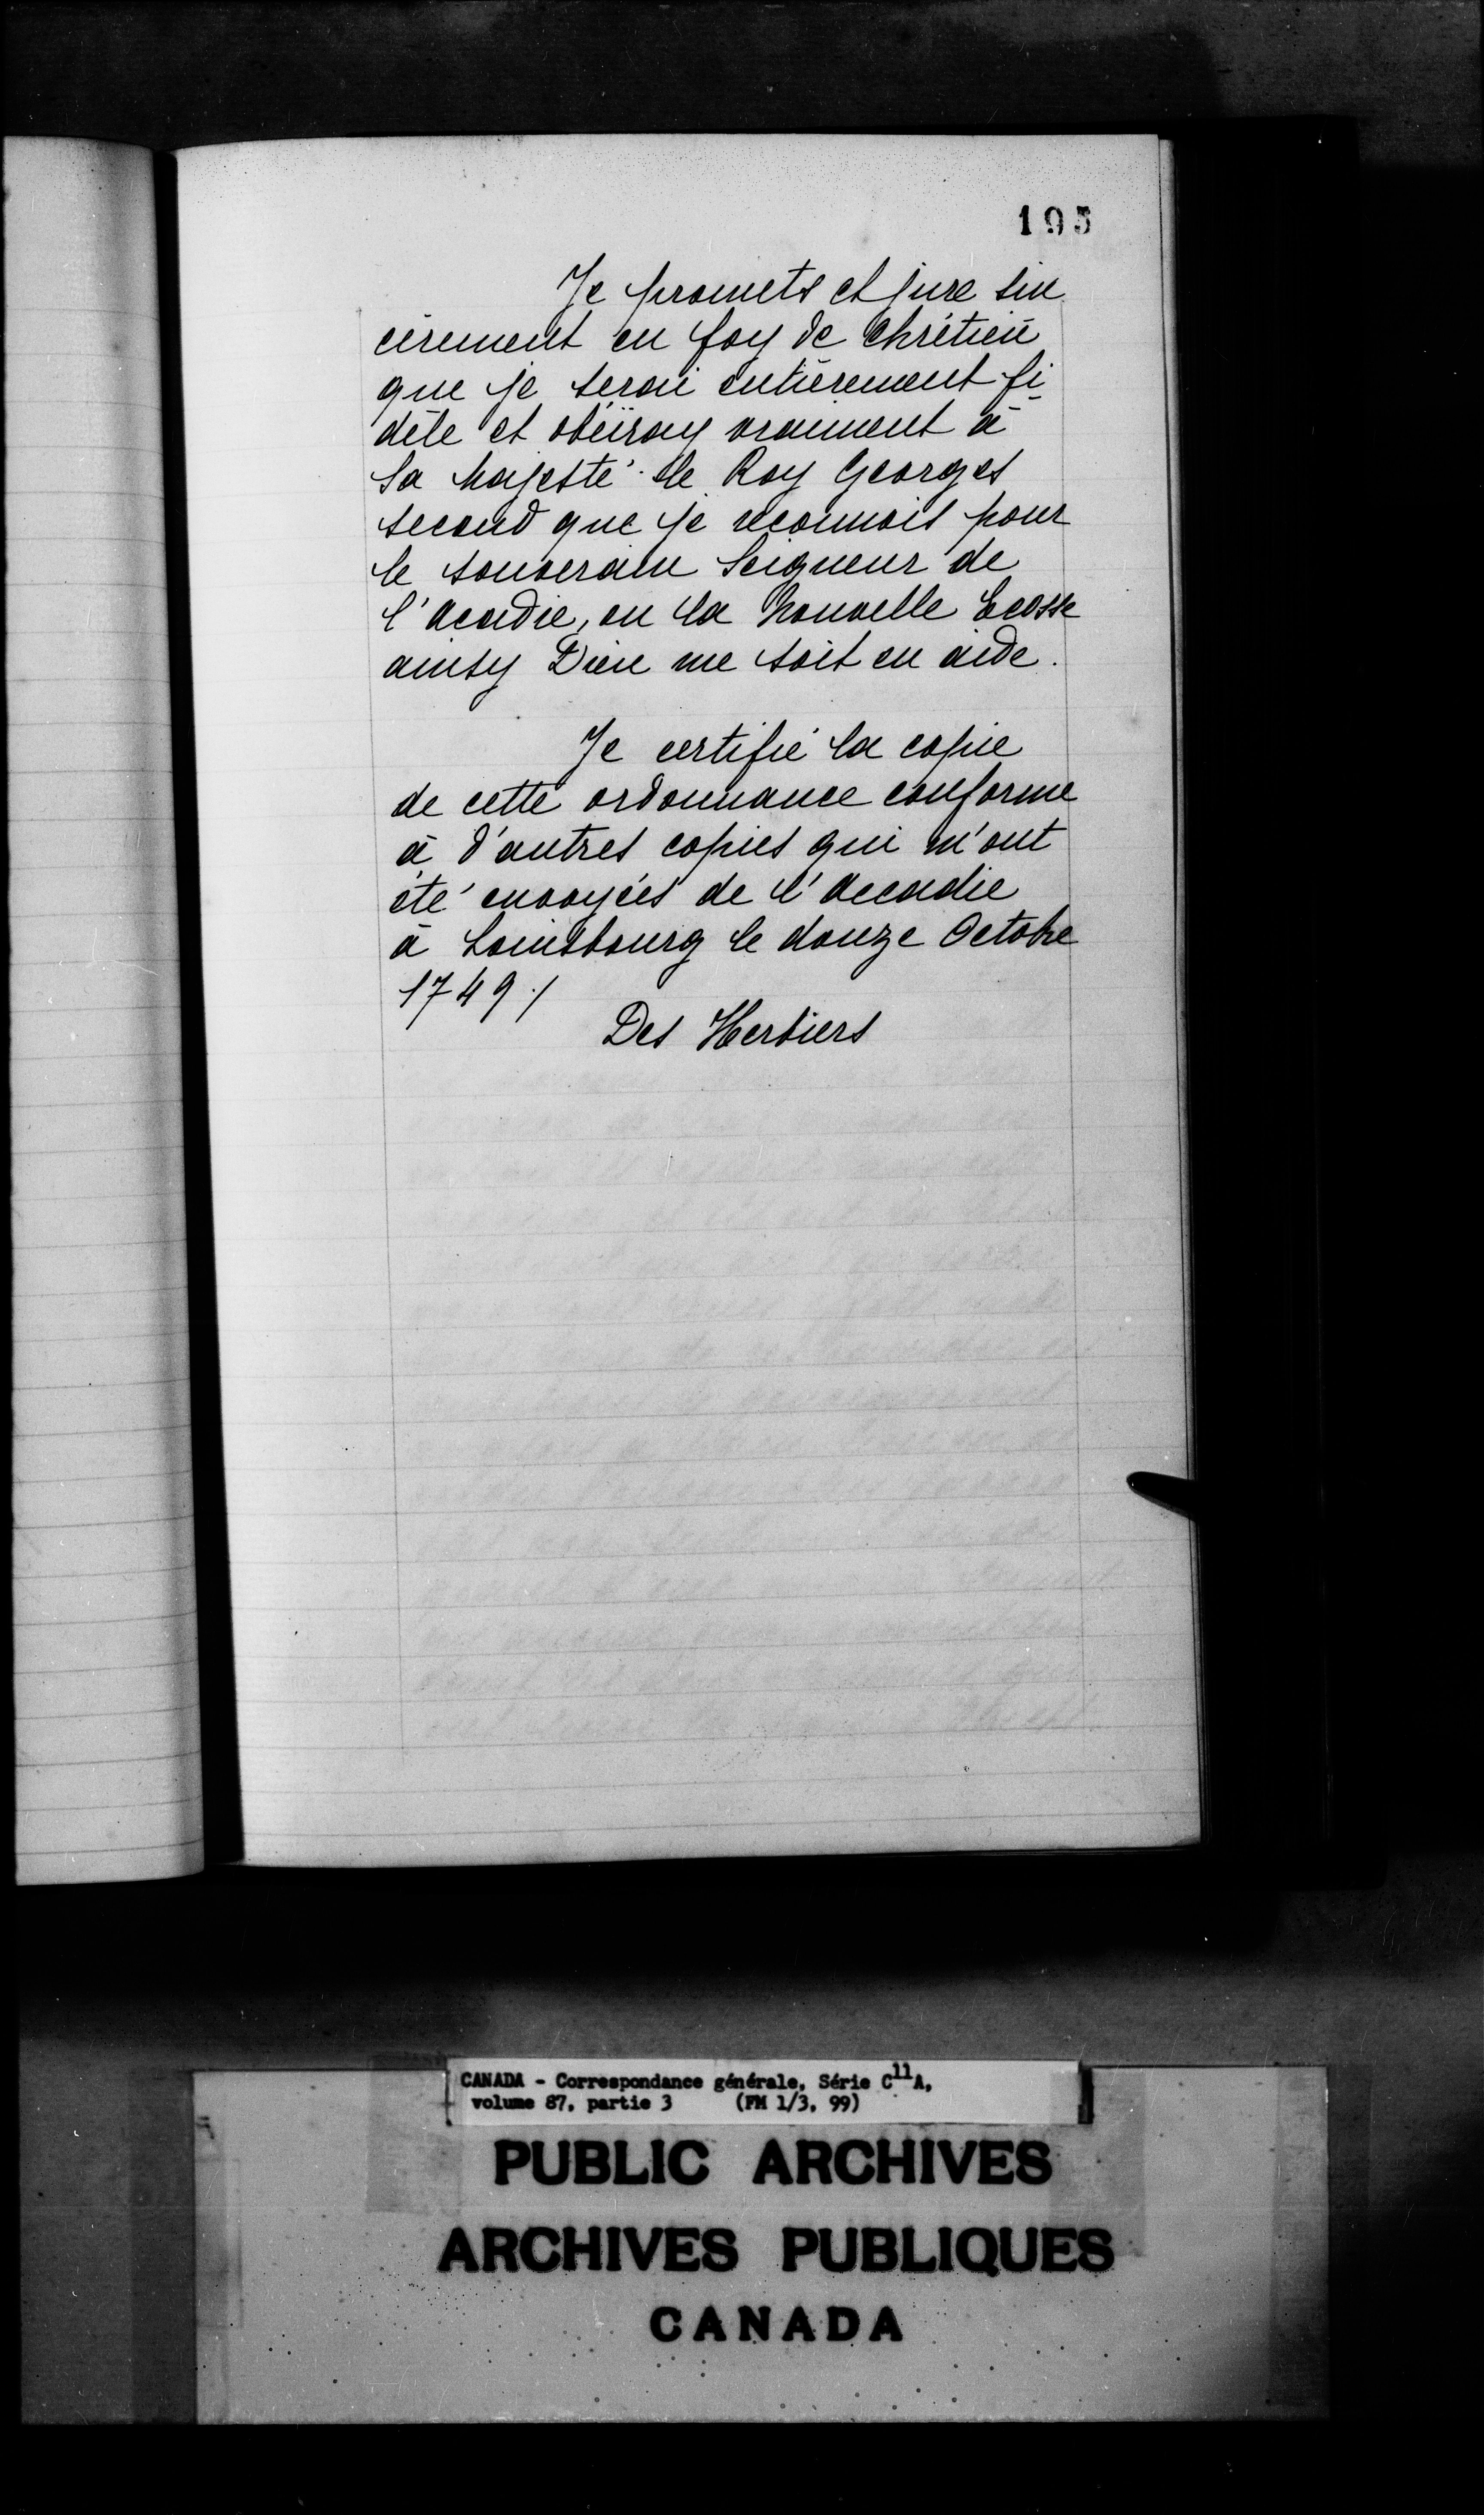 195
Je promets et jure sin
cèrement en foy de Chrétien
que je serai entièrement fi-
dèle et obéiray vraiment à
Sa Majesté le Roy Georges
second que je reconnois pour
le souverain Seigneur de
l'Acadie, ou la Nouvelle Ecosse
ainsy Dieu me soit en aide.
Je certifie la copie
de cette ordonnance conforme
à d'autres copies qui m'ont
été envoyées de l'Accadie
à Louisbourg le douze Octobre
1749 ./
Des Herbiers
CANADA - Correspondance générale, Série C11A,
volume 87, partie 3 (FM 1/3, 99)
PUBLIC ARCHIVES
ARCHIVES PUBLIQUES
CANADA